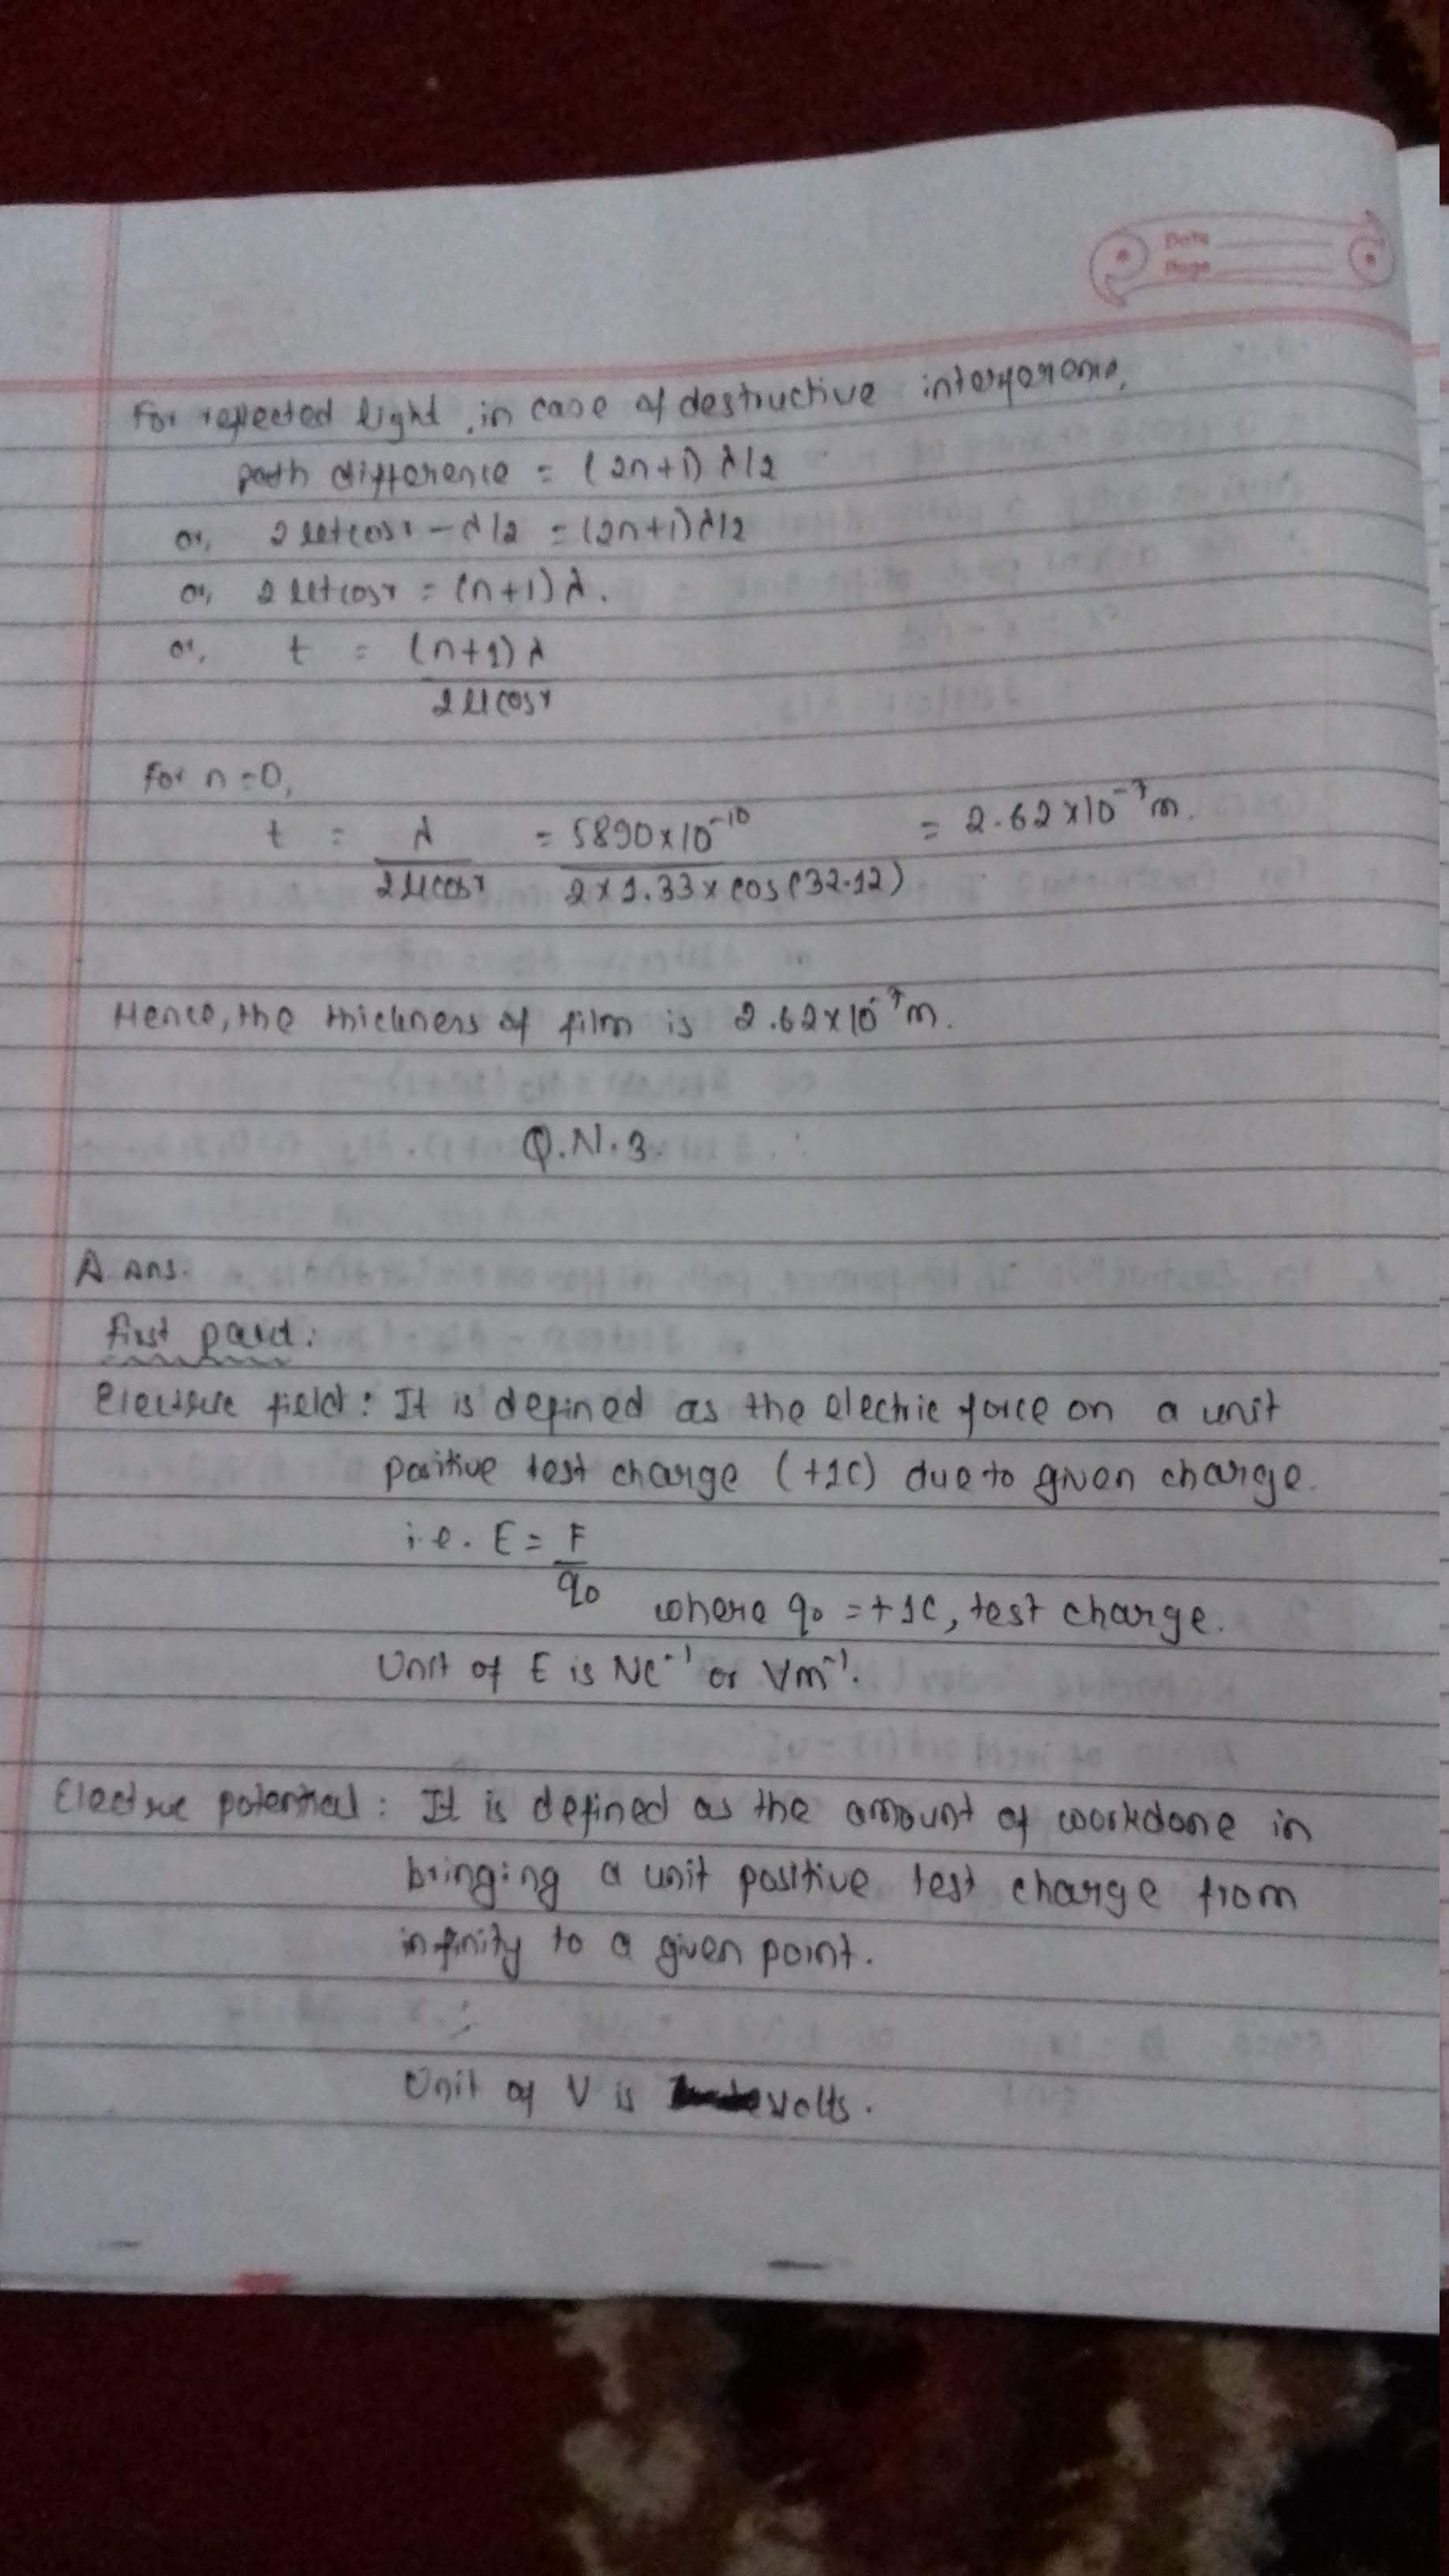 Date
Page
For reflected light, in case of destructive interference,
path difference = (2n+1) λ/2
or, 2μtcosr - λ/2 = (2n+1)λ/2
or, 2μtcosr = (n+1)λ.
or, t = (n+1)λ
2μcosr
For n=0,
t = λ = 5890×10⁻¹⁰ = 2.62×10⁻⁷m.
2μcosr 2×1.33×cos(32.12)
Hence, the thickness of film is 2.62×10⁻⁷m.
Q.N.3.
A. Ans.
First part:
Electric field: It is defined as the electric force on a unit
positive test charge (+1C) due to given charge.
i.e. E = F
q₀ where q₀ = +1C, test charge.
Unit of E is NC⁻¹ or Vm⁻¹.
Electric potential: It is defined as the amount of workdone in
bringing a unit positive test charge from
infinity to a given point.
Unit of V is volts.